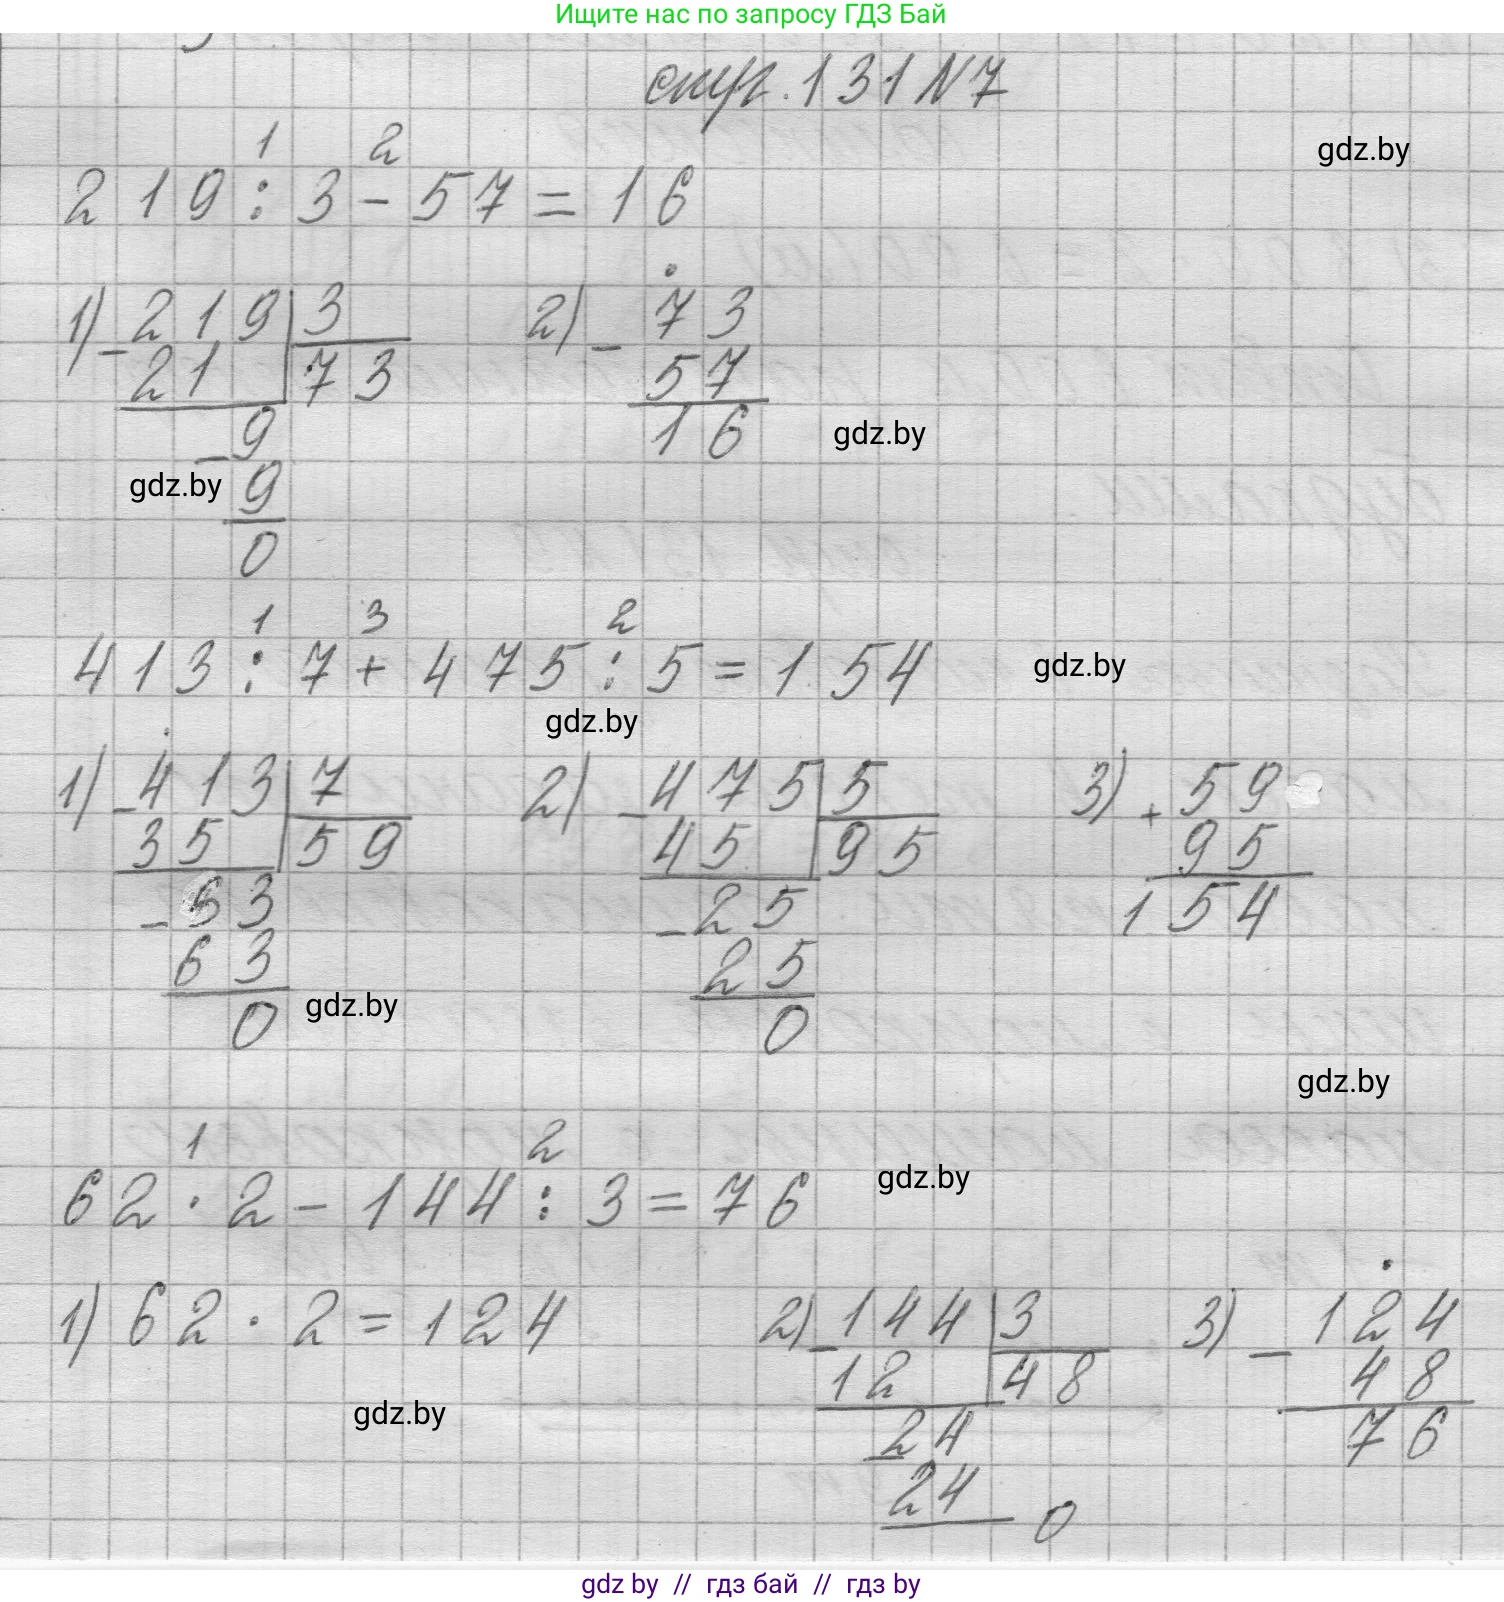 Ищите нас по запросу ГДЗ Бай
стр. 131 N 7
gdz.by
1 2
219 : 3 - 57 = 16
1) - 219 | 3
21 73
- 9
9
0
2) - 73
57
16
gdz.by
gdz.by
1 3 2
413 : 7 + 475 : 5 = 154
gdz.by
gdz.by
1) - 413 | 7
35 59
- 63
63
0
2) - 475 | 5
45 95
- 25
25
0
3) + 59
95
154
gdz.by
gdz.by
1 2
62 · 2 - 144 : 3 = 76
gdz.by
1) 62 · 2 = 124
2) - 144 | 3
12 48
- 24
24
0
3) - 124
48
76
gdz.by
gdz by // гдз бай // гдз by